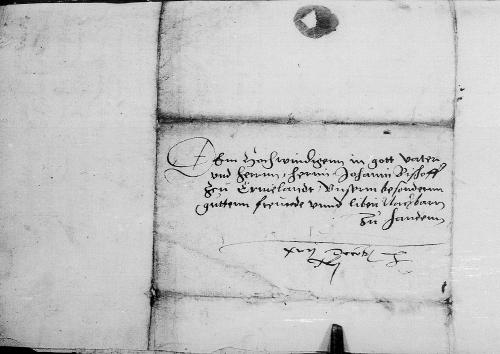 Dem Hochwirdigenn in gott vater
vnd herrnn, herrnn Johann Bischoff
zu Ermelandt Vnserm besonderun
guttenn freunde vnnd liben Nachbarn
Zu handenn